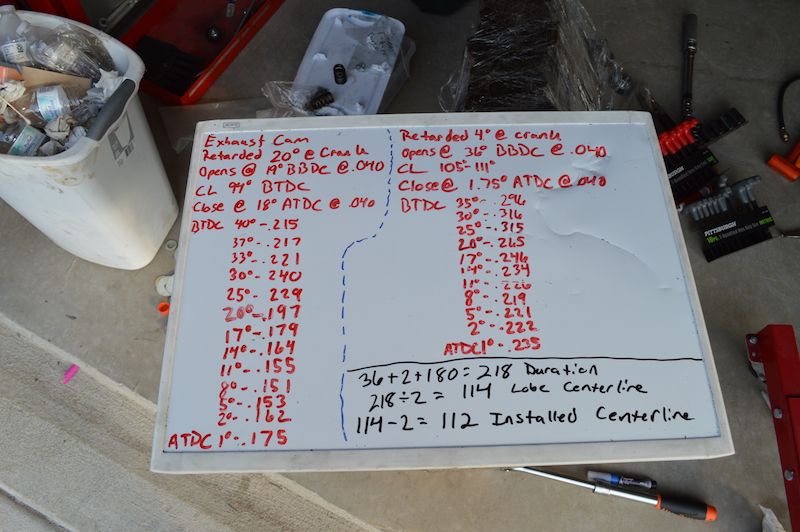 Exhaust Cam
Retarded 20° @ Crank
Opens @ 19° BBDC @ .040
CL 99° BTDC
Close @ 18° ATDC @ .040
BTDC 40° - .215
37° - .217
33° - .221
30° - .240
25° - .229
20° - .197
17° - .179
14° - .164
11° - .155
8° - .151
5° - .153
2° - .162
ATDC 1° - .175
Retarded 4° @ crank
Opens @ 36° BBDC @ .040
CL 105° - 111°
Close @ 1.75° ATDC @ .040
BTDC 35° - .296
30° - .316
25° - .315
20° - .265
17° - .246
14° - .234
11° - .226
8° - .219
5° - .221
2° - .222
ATDC 1° - .235
36+2+180 = 218 Duration
218÷2 = 114 Lobe Centerline
114-2 = 112 Installed Centerline
PITTSBURGH
PITTSBURGH